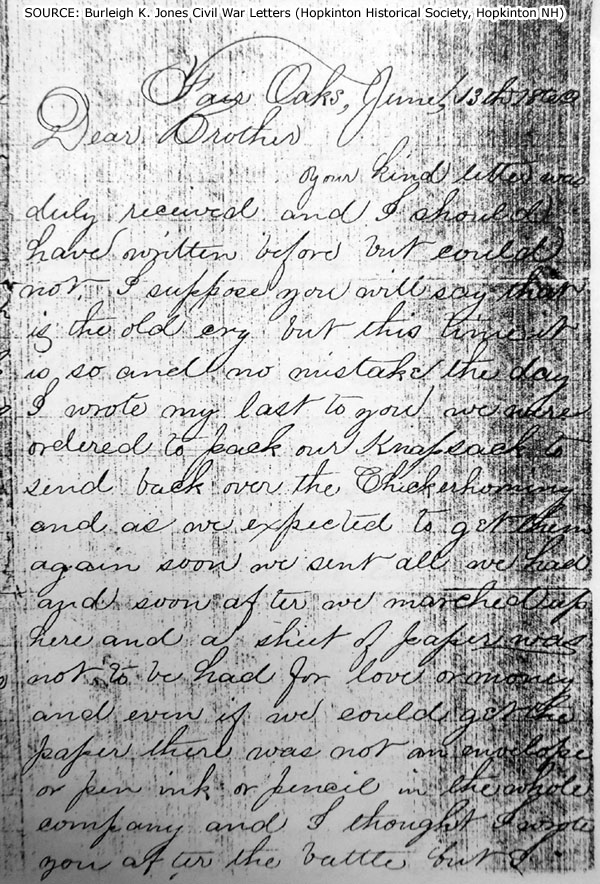 SOURCE: Burleigh K. Jones Civil War Letters (Hopkinton Historical Society, Hopkinton NH)
Fair Oaks, June, 13th 1862
Dear Brother
your kind letter was
duly received and I should
have written before but could
not. I suppose you will say that
is the old cry but this time it
is so and no mistake the day
I wrote my last to you we were
ordered to pack our Knapsack to
send back over the Chickerhominy
and as we expected to get them
again soon we sent all we had
and soon after we marched up
here and a sheet of paper was
not to be had for love or money
and even if we could get the
paper there was not an envelope
or pen ink or pencil in the whole
company and I thought I wrote
you after the battle but I